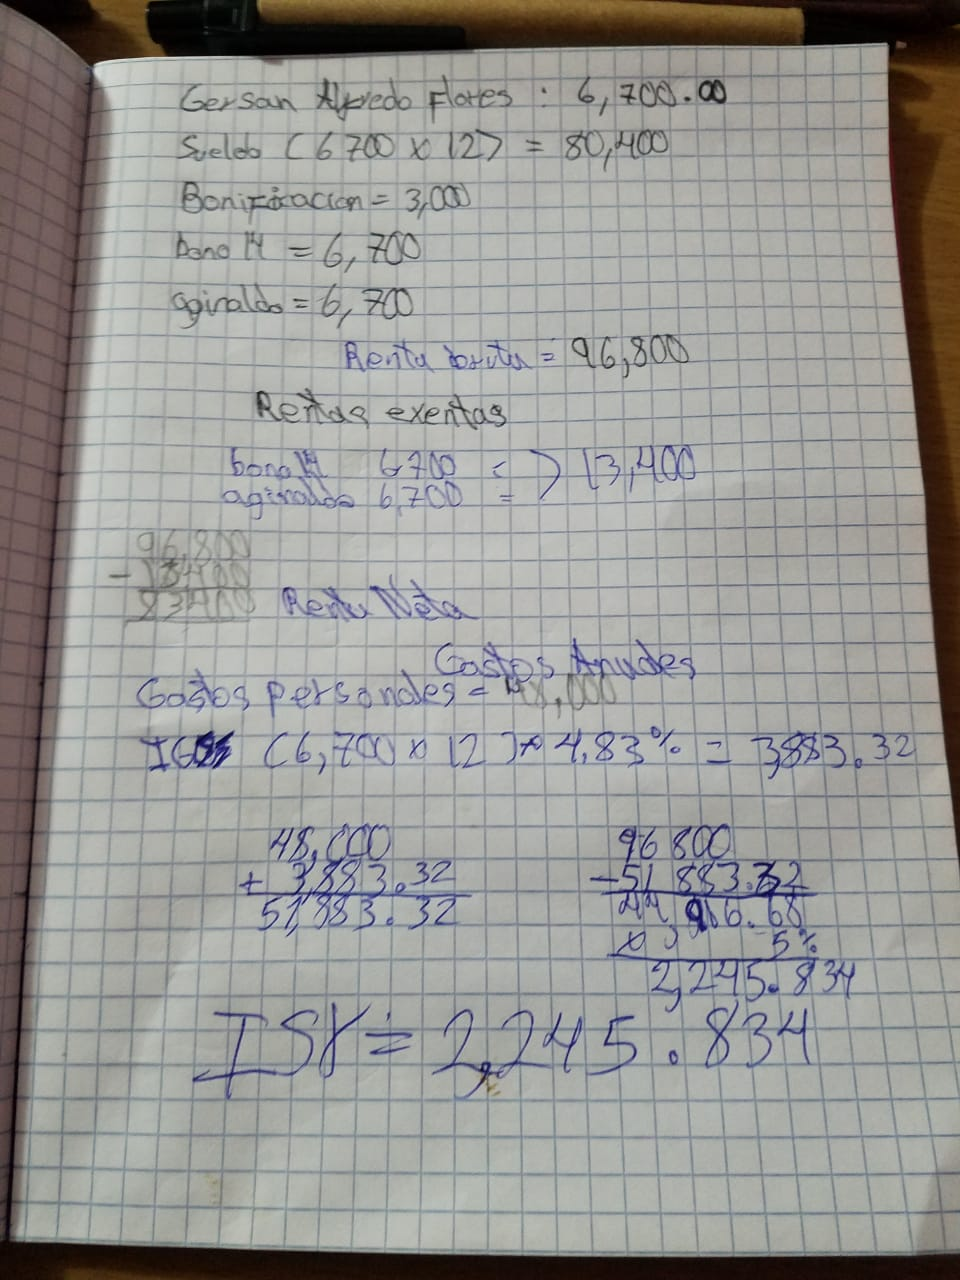 Gersan Alfredo Flores : 6,700.00
Sueldo (6700 x 12) = 80,400
Bonificacion = 3,000
bono 14 = 6,700
aginaldo = 6,700
Renta bruta = 96,800
Rentas exentas
bono 14 6700 = > 13,400
aginaldo 6,700 =
96,800
- 13400
83400 Renta Neta
Gastos Anuales
Gastos personales = 48,000
(6,700 x 12) x 4,83% = 3,883.32
48,000
+ 3,883.32
51,883.32
96 800
- 51 883.32
44,916.68
x 5%
2,245.834
ISR = 2,245.834